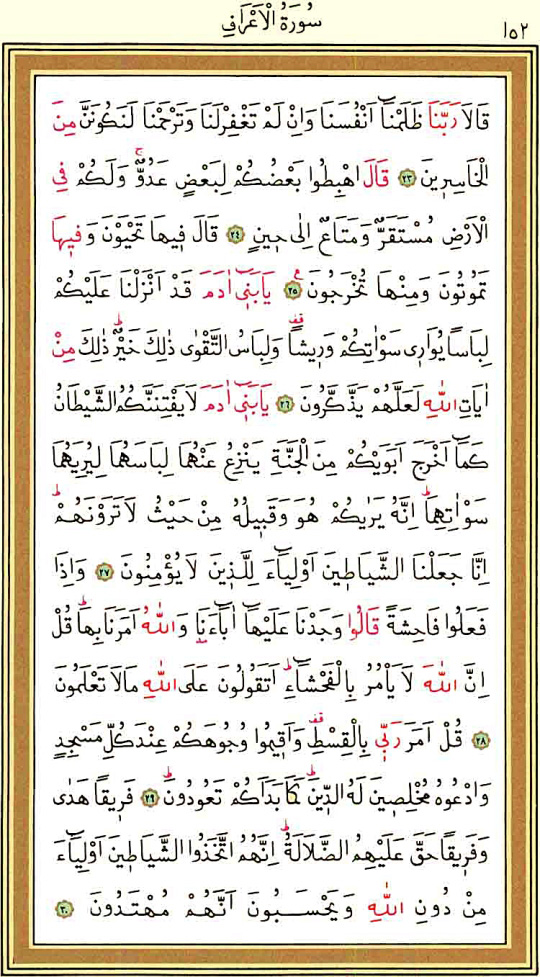 ١٥٢ سُورَةُ الْاَعْرَافِ
قَالَا رَبَّنَا ظَلَمْنَٓا اَنْفُسَنَا وَاِنْ لَمْ تَغْفِرْلَنَا وَتَرْحَمْنَا لَنَكُونَنَّ مِنَ
الْخَاسِرٖينَ ﴿٢٣﴾ قَالَ اهْبِطُوا بَعْضُكُمْ لِبَعْضٍ عَدُوٌّۚ وَلَكُمْ فِي
الْاَرْضِ مُسْتَقَرٌّ وَمَتَاعٌ اِلٰى حٖينٍ ﴿٢٤﴾ قَالَ فٖيهَا تَحْيَوْنَ وَفٖيهَا
تَمُوتُونَ وَمِنْهَا تُخْرَجُونَࣖ ﴿٢٥﴾ يَابَنٖٓي اٰدَمَ قَدْ اَنْزَلْنَا عَلَيْكُمْ
لِبَاساً يُوَارٖي سَوْاٰتِكُمْ وَرٖيشاًؕ وَلِبَاسُ التَّقْوٰى ذٰلِكَ خَيْرٌؕ ذٰلِكَ مِنْ
اٰيَاتِ اللّٰهِ لَعَلَّهُمْ يَذَّكَّرُونَ ﴿٢٦﴾ يَابَنٖٓي اٰدَمَ لَا يَفْتِنَنَّكُمُ الشَّيْطَانُ
كَمَٓا اَخْرَجَ اَبَوَيْكُمْ مِنَ الْجَنَّةِ يَنْزِعُ عَنْهُمَا لِبَاسَهُمَا لِيُرِيَهُمَا
سَوْاٰتِهِمَاؕ اِنَّهُ يَرٰيكُمْ هُوَ وَقَبٖيلُهُ مِنْ حَيْثُ لَا تَرَوْنَهُمْؕ
اِنَّا جَعَلْنَا الشَّيَاطٖينَ اَوْلِيَٓاءَ لِلَّذٖينَ لَا يُؤْمِنُونَ ﴿٢٧﴾ وَاِذَا
فَعَلُوا فَاحِشَةً قَالُوا وَجَدْنَا عَلَيْهَٓا اٰبَٓاءَنَا وَاللّٰهُ اَمَرَنَا بِهَاؕ قُلْ
اِنَّ اللّٰهَ لَا يَأْمُرُ بِالْفَحْشَٓاءِؕ اَتَقُولُونَ عَلَى اللّٰهِ مَالَا تَعْلَمُونَ
﴿٢٨﴾ قُلْ اَمَرَ رَبّٖي بِالْقِسْطِ وَاَقٖيمُوا وُجُوهَكُمْ عِنْدَ كُلِّ مَسْجِدٍ
وَادْعُوهُ مُخْلِصٖينَ لَهُ الدّٖينَؕ كَمَا بَدَاَكُمْ تَعُودُونَؕ ﴿٢٩﴾ فَرٖيقاً هَدٰى
وَفَرٖيقاً حَقَّ عَلَيْهِمُ الضَّلَالَةُؕ اِنَّهُمُ اتَّخَذُوا الشَّيَاطٖينَ اَوْلِيَٓاءَ
مِنْ دُونِ اللّٰهِ وَيَحْسَبُونَ اَنَّهُمْ مُهْتَدُونَ ﴿٣٠﴾